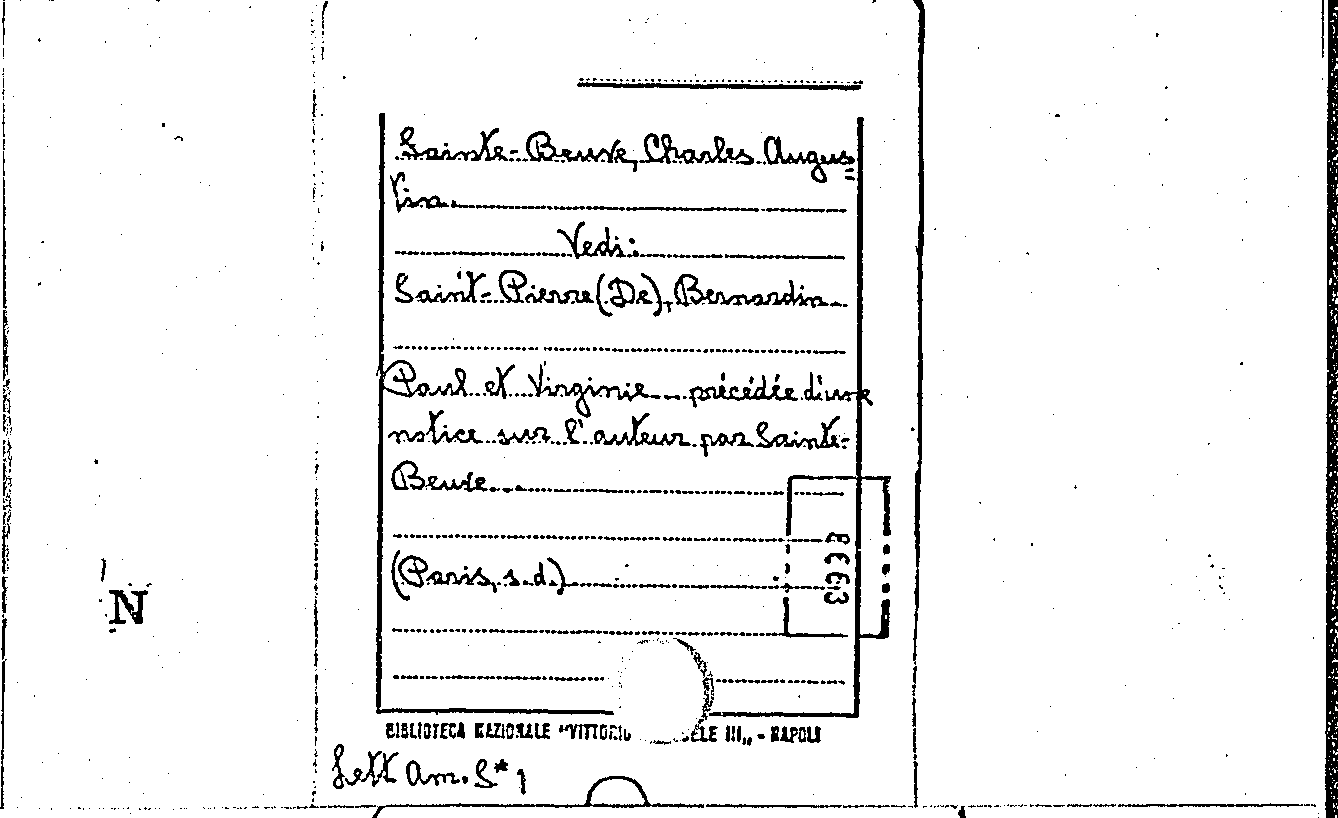 Sainte-Beuve, Charles Augus=
tin.
Vedi:
Saint-Pierre (De), Bernardin
Paul et Virginie... précédée d'une
notice sur l'auteur par Sainte-
Beuve...
(Paris, s.d.)
N
BIBLIOTECA NAZIONALE "VITTORIO ELE III„ - NAPOLI
Lett Am. S* 1